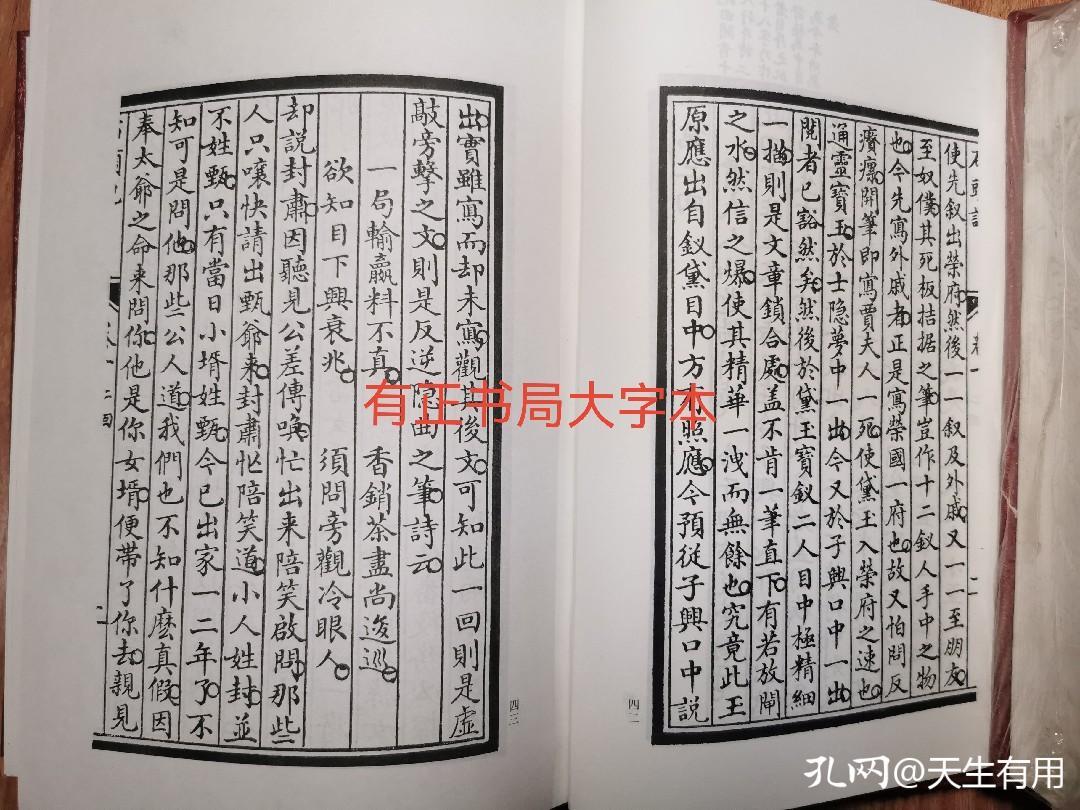 石頭記
卷一
使先叙出榮府然後一一叙及外戚又一一至朋友
至奴僕其死板拮据之筆豈作十二釵人手中之物
也今先寫外戚者正是寫榮國一府也故又怕問反
瘡瘰開筆即寫賈夫人一死使黛玉入榮府之速也
通靈寶玉於士隐夢中一出今又於子興口中一出
閱者已豁然矣然後於黛玉寶釵二人目中極精細
一描則是文章鎖合處盖不肯一筆直下有若放閘
之水然信之爆使其精華一洩而無餘也究竟此玉
原應出自釵黛目中方有照應今預從子興口中說
四二
出實雖寫而却未寫觀其後文可知此一回則是虛
敲旁擊之文則是反逆隐曲之筆詩云
一局輸贏料不真 香銷茶盡尚逡巡
欲知目下興衰兆 須問旁觀冷眼人
却說封肅因聽見公差傳喚忙出来陪笑啟問那些
人只嚷快請出甄爺来封肅忙陪笑道小人姓封並
不姓甄只有當日小壻姓甄今已出家一二年了不
知可是問他那些公人道我們也不知什麽真假因
奉太爺之命来問你他是你女壻便帶了你去親見
四三
有正书局大字本
孔网@天生有用